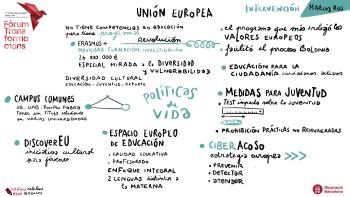 UNIÓN EUROPEA
INTERVENCIÓN
MARCOS ROS
Fòrum
Trans
forma
cions
NO TIENE COMPETENCIAS EN EDUCACIÓN
pero tiene programas
ERASMUS+
revolución
MOVILIDAD, FORMACIÓN, INVESTIGACIÓN
26 000 000 €
ESPECIAL MIRADA a la DIVERSIDAD
y VULNERABILIDAD
DIVERSIDAD CULTURAL
EDUCACIÓN, JUVENTUD, DEPORTE
el programa que más
VALORES EUROPEOS
facilitó el proceso Bolonia
EDUCACIÓN PARA LA
CIUDADANÍA
CAMPUS COMUNES
Tener un título
en varias UNIVERSIDADES
POLÍTICAS
de
VIDA
MEDIDAS PARA JUVENTUD
Test impacto sobre la juventud
PROHIBICIÓN PRÁCTICAS NO REMUNERADAS
DISCOVEREU
iniciativa cultural
para jóvenes
ESPACIO EUROPEO
DE EDUCACIÓN
CALIDAD EDUCATIVA
PROFESORADO
ENFOQUE INTEGRAL
2 LENGUAS distintas a
la MATERNA
CIBERACOSO
estrategia europea
PREVENIR
DETECTAR
ATENDER
Diputació
Barcelona